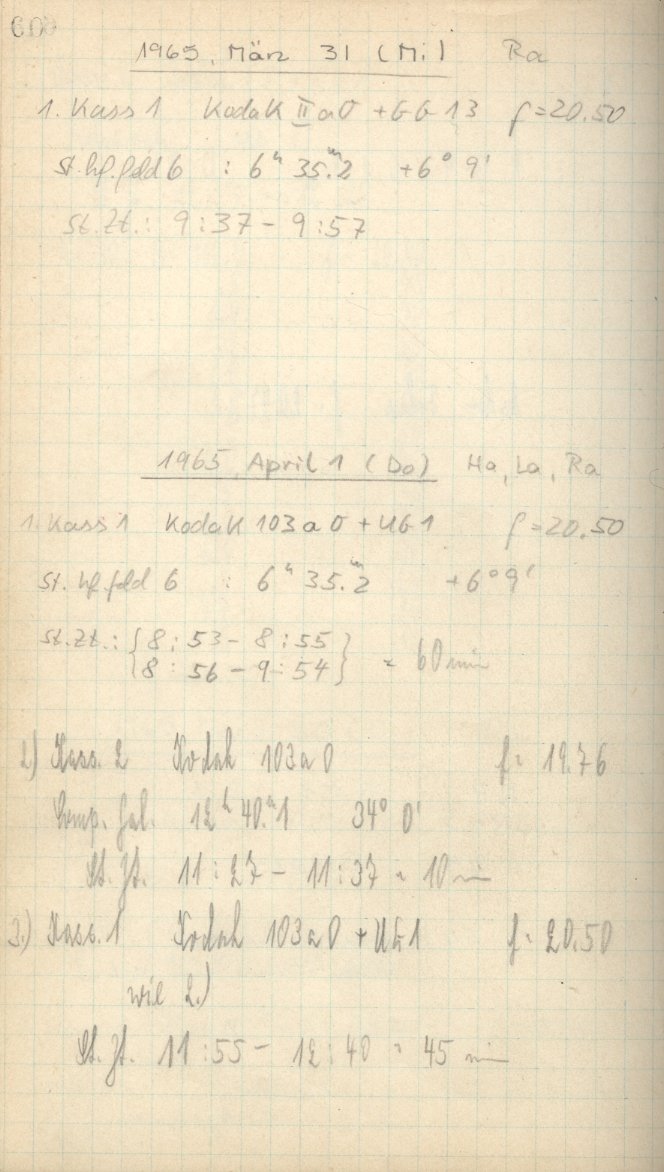 60
1965, März 31 (Mi) Ra
1. Kass 1 Kodak II a O + GG 13 f = 20.50
St. hf. feld 6 : 6ʰ 35.ᵐ2 +6° 9'
St. Zt.: 9:37 - 9:57
1965 April 1 (Do) Ha, La, Ra
1. Kass 1 Kodak 103 a O + UG 1 f = 20.50
St. hf. feld 6 : 6ʰ 35.ᵐ2 +6° 9'
St. Zt.: {8:53 - 8:55}
{8:56 - 9:54} = 60 min
2.) Kass. 2 Kodak 103 a O f = 19.76
Comp. Gal. 12ʰ 40.ᵐ1 34° 0'
St. Zt. 11:27 - 11:37 = 10 min
3.) Kass. 1 Kodak 103 a O + UG 1 f = 20.50
wie 2.)
St. Zt. 11:55 - 12:40 = 45 min